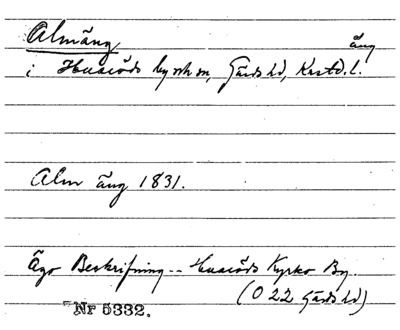 Almäng äng
i Huaröds by och sn, Gärds hd, Krstd. l.
Alm äng 1831.
Ägo Beskrifning -- Huaröds Kyrko By.
(O 22 Gärds hd)
Nr 5332.